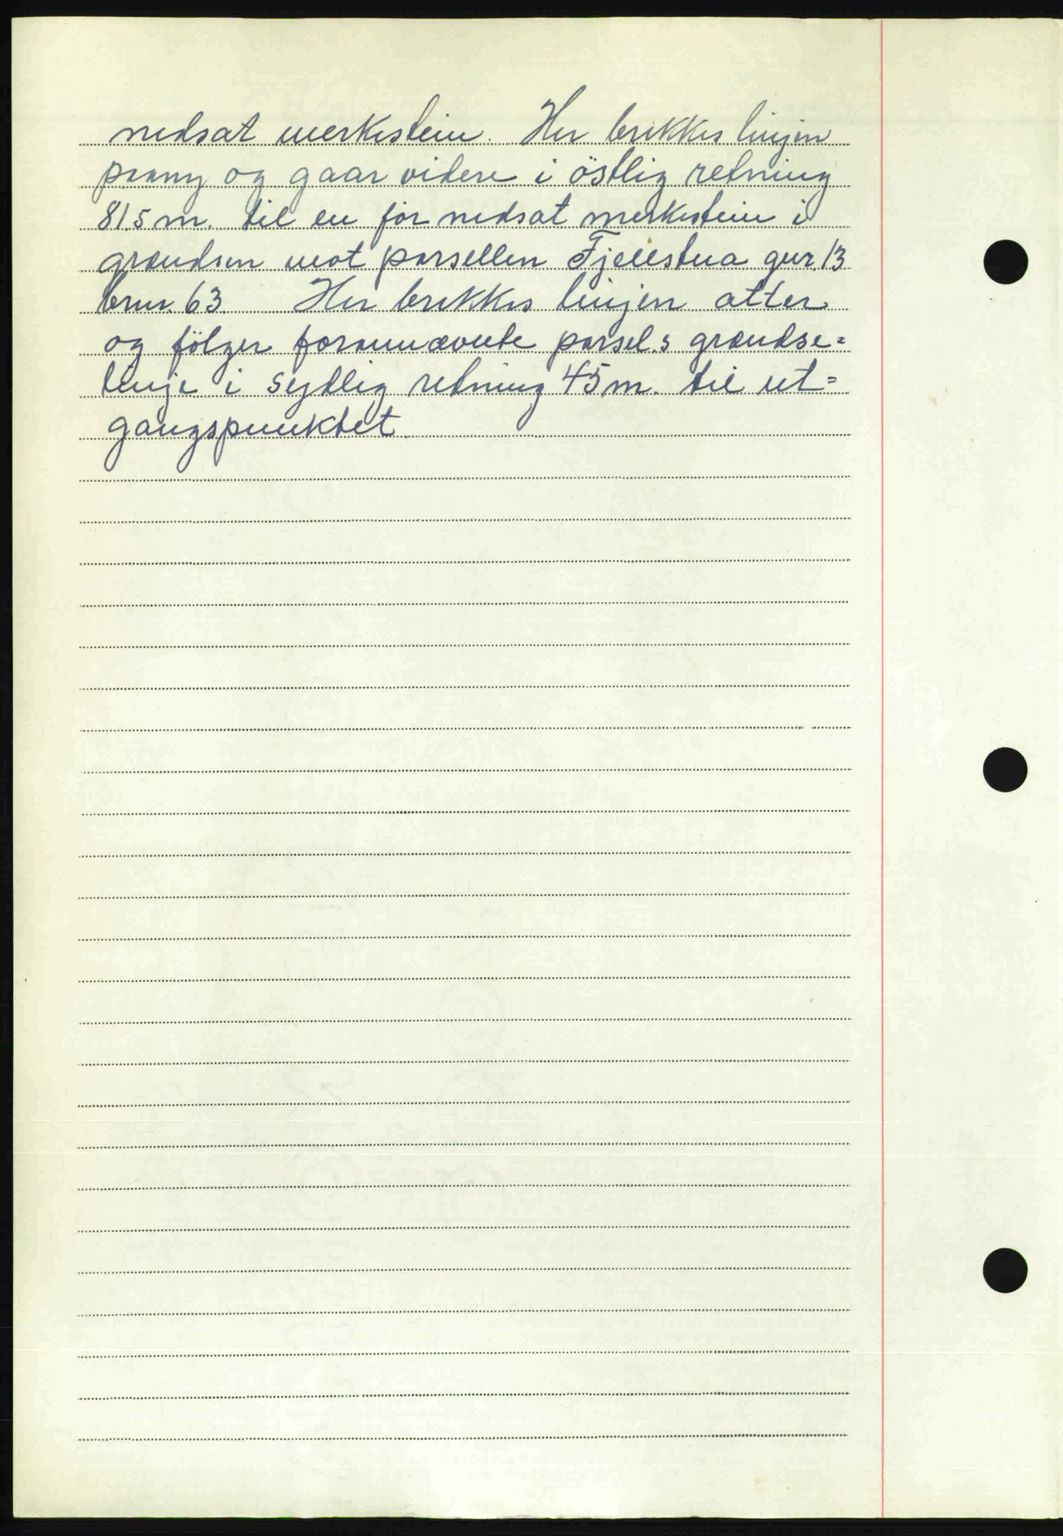 nedsat merkestein. Her brekkes linjen
paany og gaar videre i östlig retning
81,5 m. til en för nedsat merkestein i
grændsen mot parsellen Fjellstua gnr. 13
brnr. 63. Her brekkes linjen atter
og fölger forannævnte parsel.s grændse=
linje i sydlig retning 45 m. til ut=
gangspunktet.